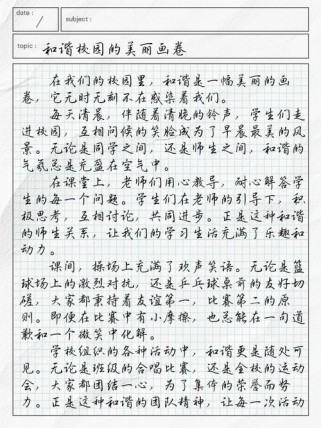 date :
subject:
topic : 和谐校园的美丽画卷
在我们的校园里，和谐是一幅美丽的画
卷，它无时无刻不在感染着我们。
每天清晨，伴随着清晚的铃声，学生们走
进校园，互相问候的笑脸成为了早晨最美的风
景。无论是同学之间，还是师生之间，和谐的
气氛总是充盈在空气中。
在课堂上，老师们用心教导，耐心解答学
生的每一个问题。学生们在老师的引导下，积
极思考，互相讨论，共同进步。正是这种和谐
的师生关系，让我们的学习生活充满了乐趣和
动力。
课间，操场上充满了欢声笑语。无论是篮
球场上的激烈对抗，还是乒乓球桌前的友好切
磋，大家都秉持着友谊第一，比赛第二的原
则。即便在比赛中有小摩擦，也总能在一句道
歉和一个微笑中化解。
学校组织的各种活动中，和谐更是随处可
见。无论是班级的合唱比赛，还是全校的运动
会，大家都团结一心，为了集体的荣誉而努
力。正是这种和谐的团队精神，让每一次活动